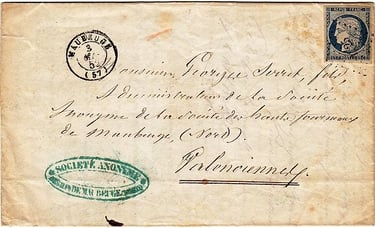 MAUBEUGE
(57)
REPUB. FRANC.
Monsieur Georges
Administrateur de la Société
Anonyme de la Société des hauts fourneaux
de Maubeuge, (Nord).
Valenciennes
SOCIÉTÉ ANONYME
DE MAUBEUGE